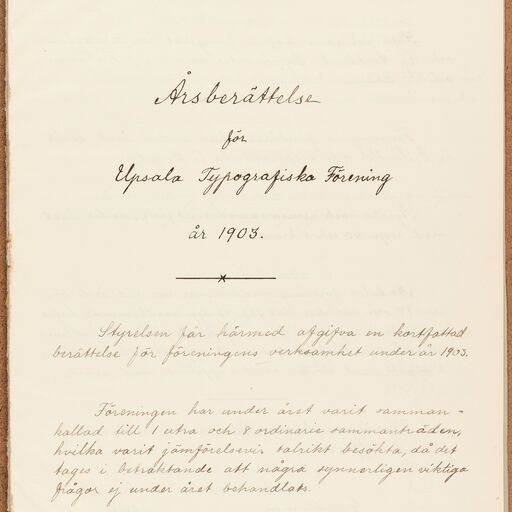 Årsberättelse
för
Upsala Typografiska Förening
år 1903.
Styrelsen får härmed afgifva en kortfattad
berättelse för föreningens verksamhet under år 1903.
Föreningen har under året varit samman-
kallad till 1 extra och 8 ordinarie sammanträden,
hvilka varit jämförelsevis talrikt besökta, då det
tages i betraktande att några synnerligen viktiga
frågor ej under året behandlats.